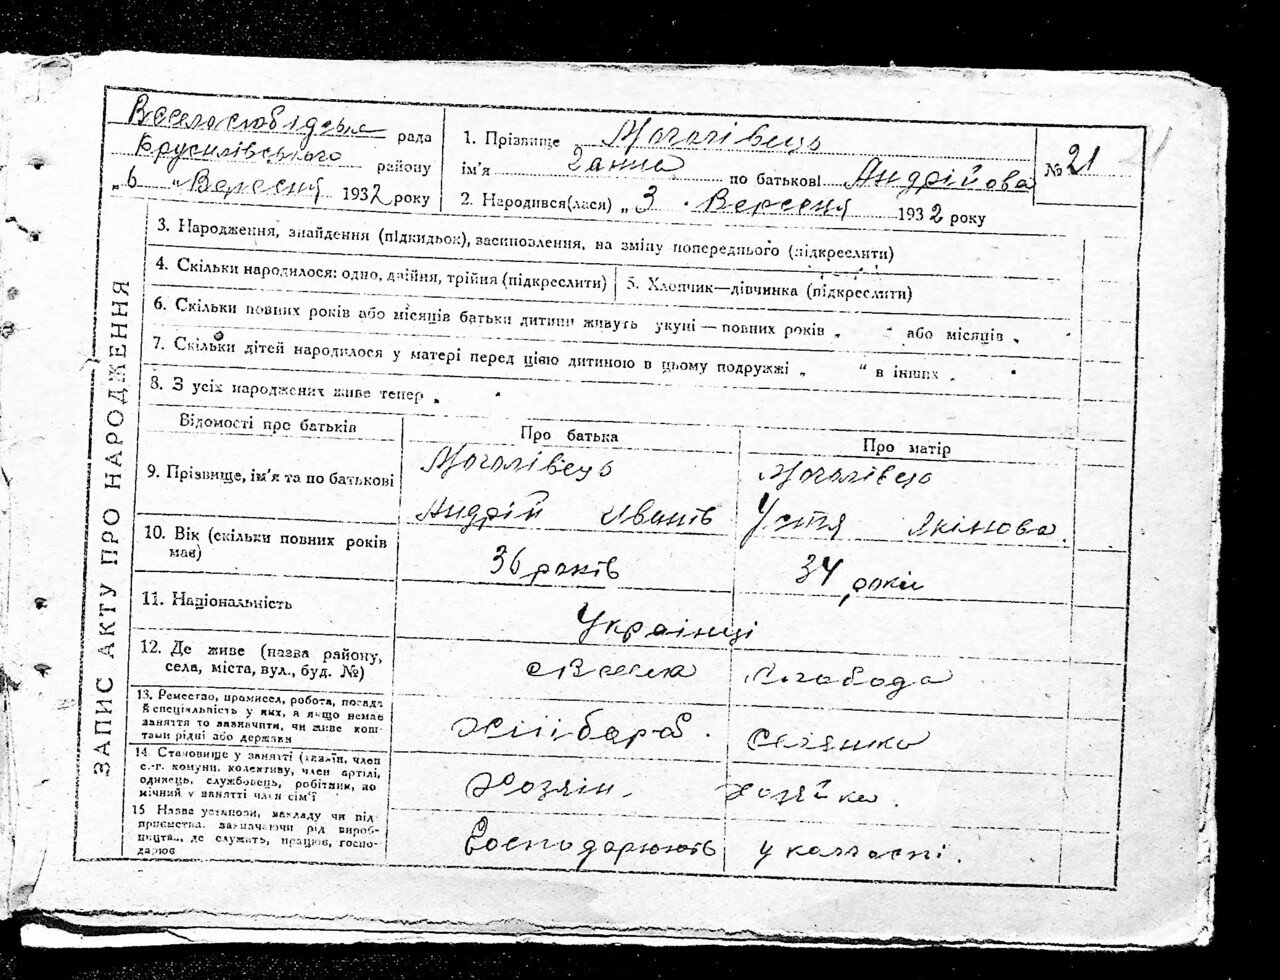 Веселослобідська рада
Брусилівського району
„ 6 „ Вересня 1932 року
1. Прізвище Моголівець
ім'я Ганна по батькові Андрійова
2. Народився(лася) „ 3 . Вересня 1932 року
№ 21
ЗАПИС АКТУ ПРО НАРОДЖЕННЯ
3. Народження, знайдення (підкидьок), засиновлення, на зміну попереднього (підкреслити)
4. Скільки народилося: одно, двійня, трійня (підкреслити)
5. Хлопчик—дівчинка (підкреслити)
6. Скільки повних років або місяців батьки дитини живуть укупі — повних років „ “ або місяців „
7. Скільки дітей народилося у матері перед цією дитиною в цьому подружжі „ “ в інших „
8. З усіх народжених живе тепер „
Відомості про батьків
Про батька
Про матір
9. Прізвище, ім'я та по батькові
Моголівець
Андрій Іванів
Моголівець
Устя Якімова.
10. Вік (скільки повних років
має)
36 років
34 роки
11. Національність
Українці
12. Де живе (назва району,
села, міста, вул., буд. №)
Весела Слобода
13. Ремество, промисел, робота, посада
й спеціяльність у них, а якщо немає
заняття то зазначити, чи живе кош-
тами рідні або держави
Хлібороб. Селянка
14. Становище у занятті (хазяїн, член
с.-г. комуни, колективу, член артілі,
одинець, службовець, робітник, по
мічний у занятті член сім'ї
Хозяін. Хозяйка.
15 Назва установи, закладу чи під
приємства, зазначаючи рід вироб-
ництва, де служать, працює, госпо-
дарює
Господарюють у колгоспі.